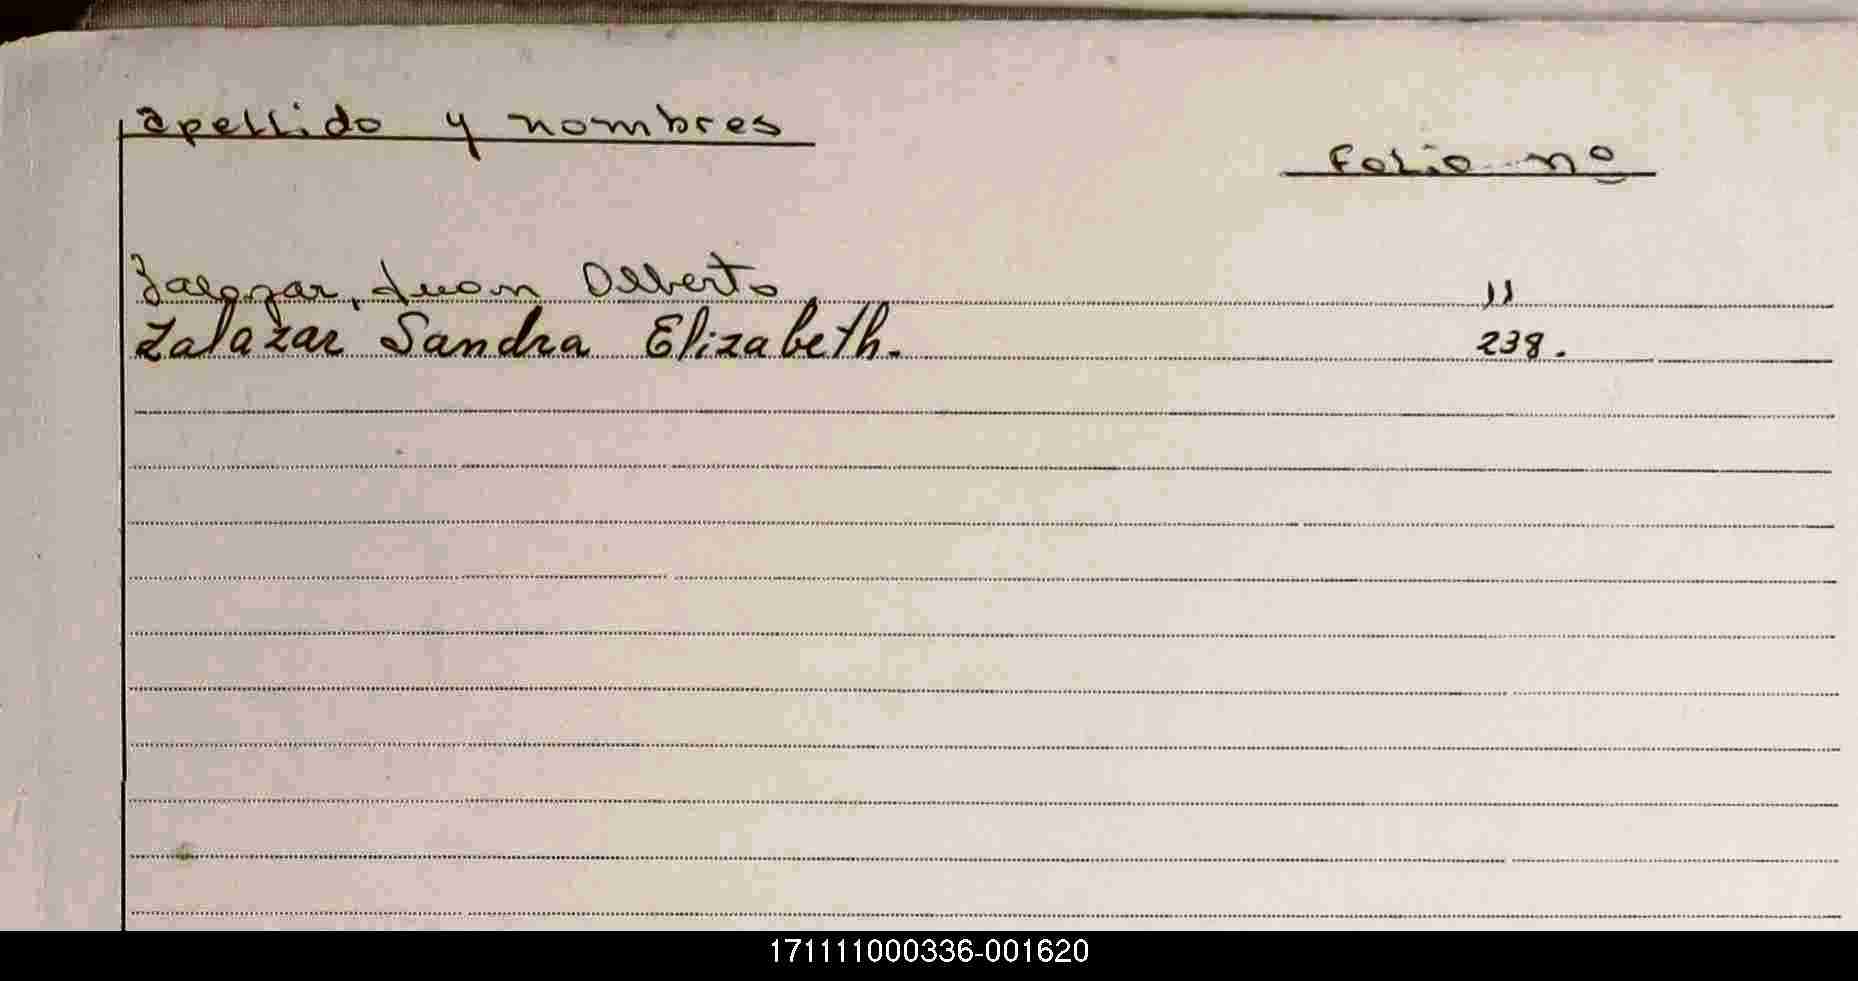 apellido y nombres
Folio nº
Zalazar, Juan Alberto 11
Zalazar Sandra Elizabeth. 238.
171111000336-001620